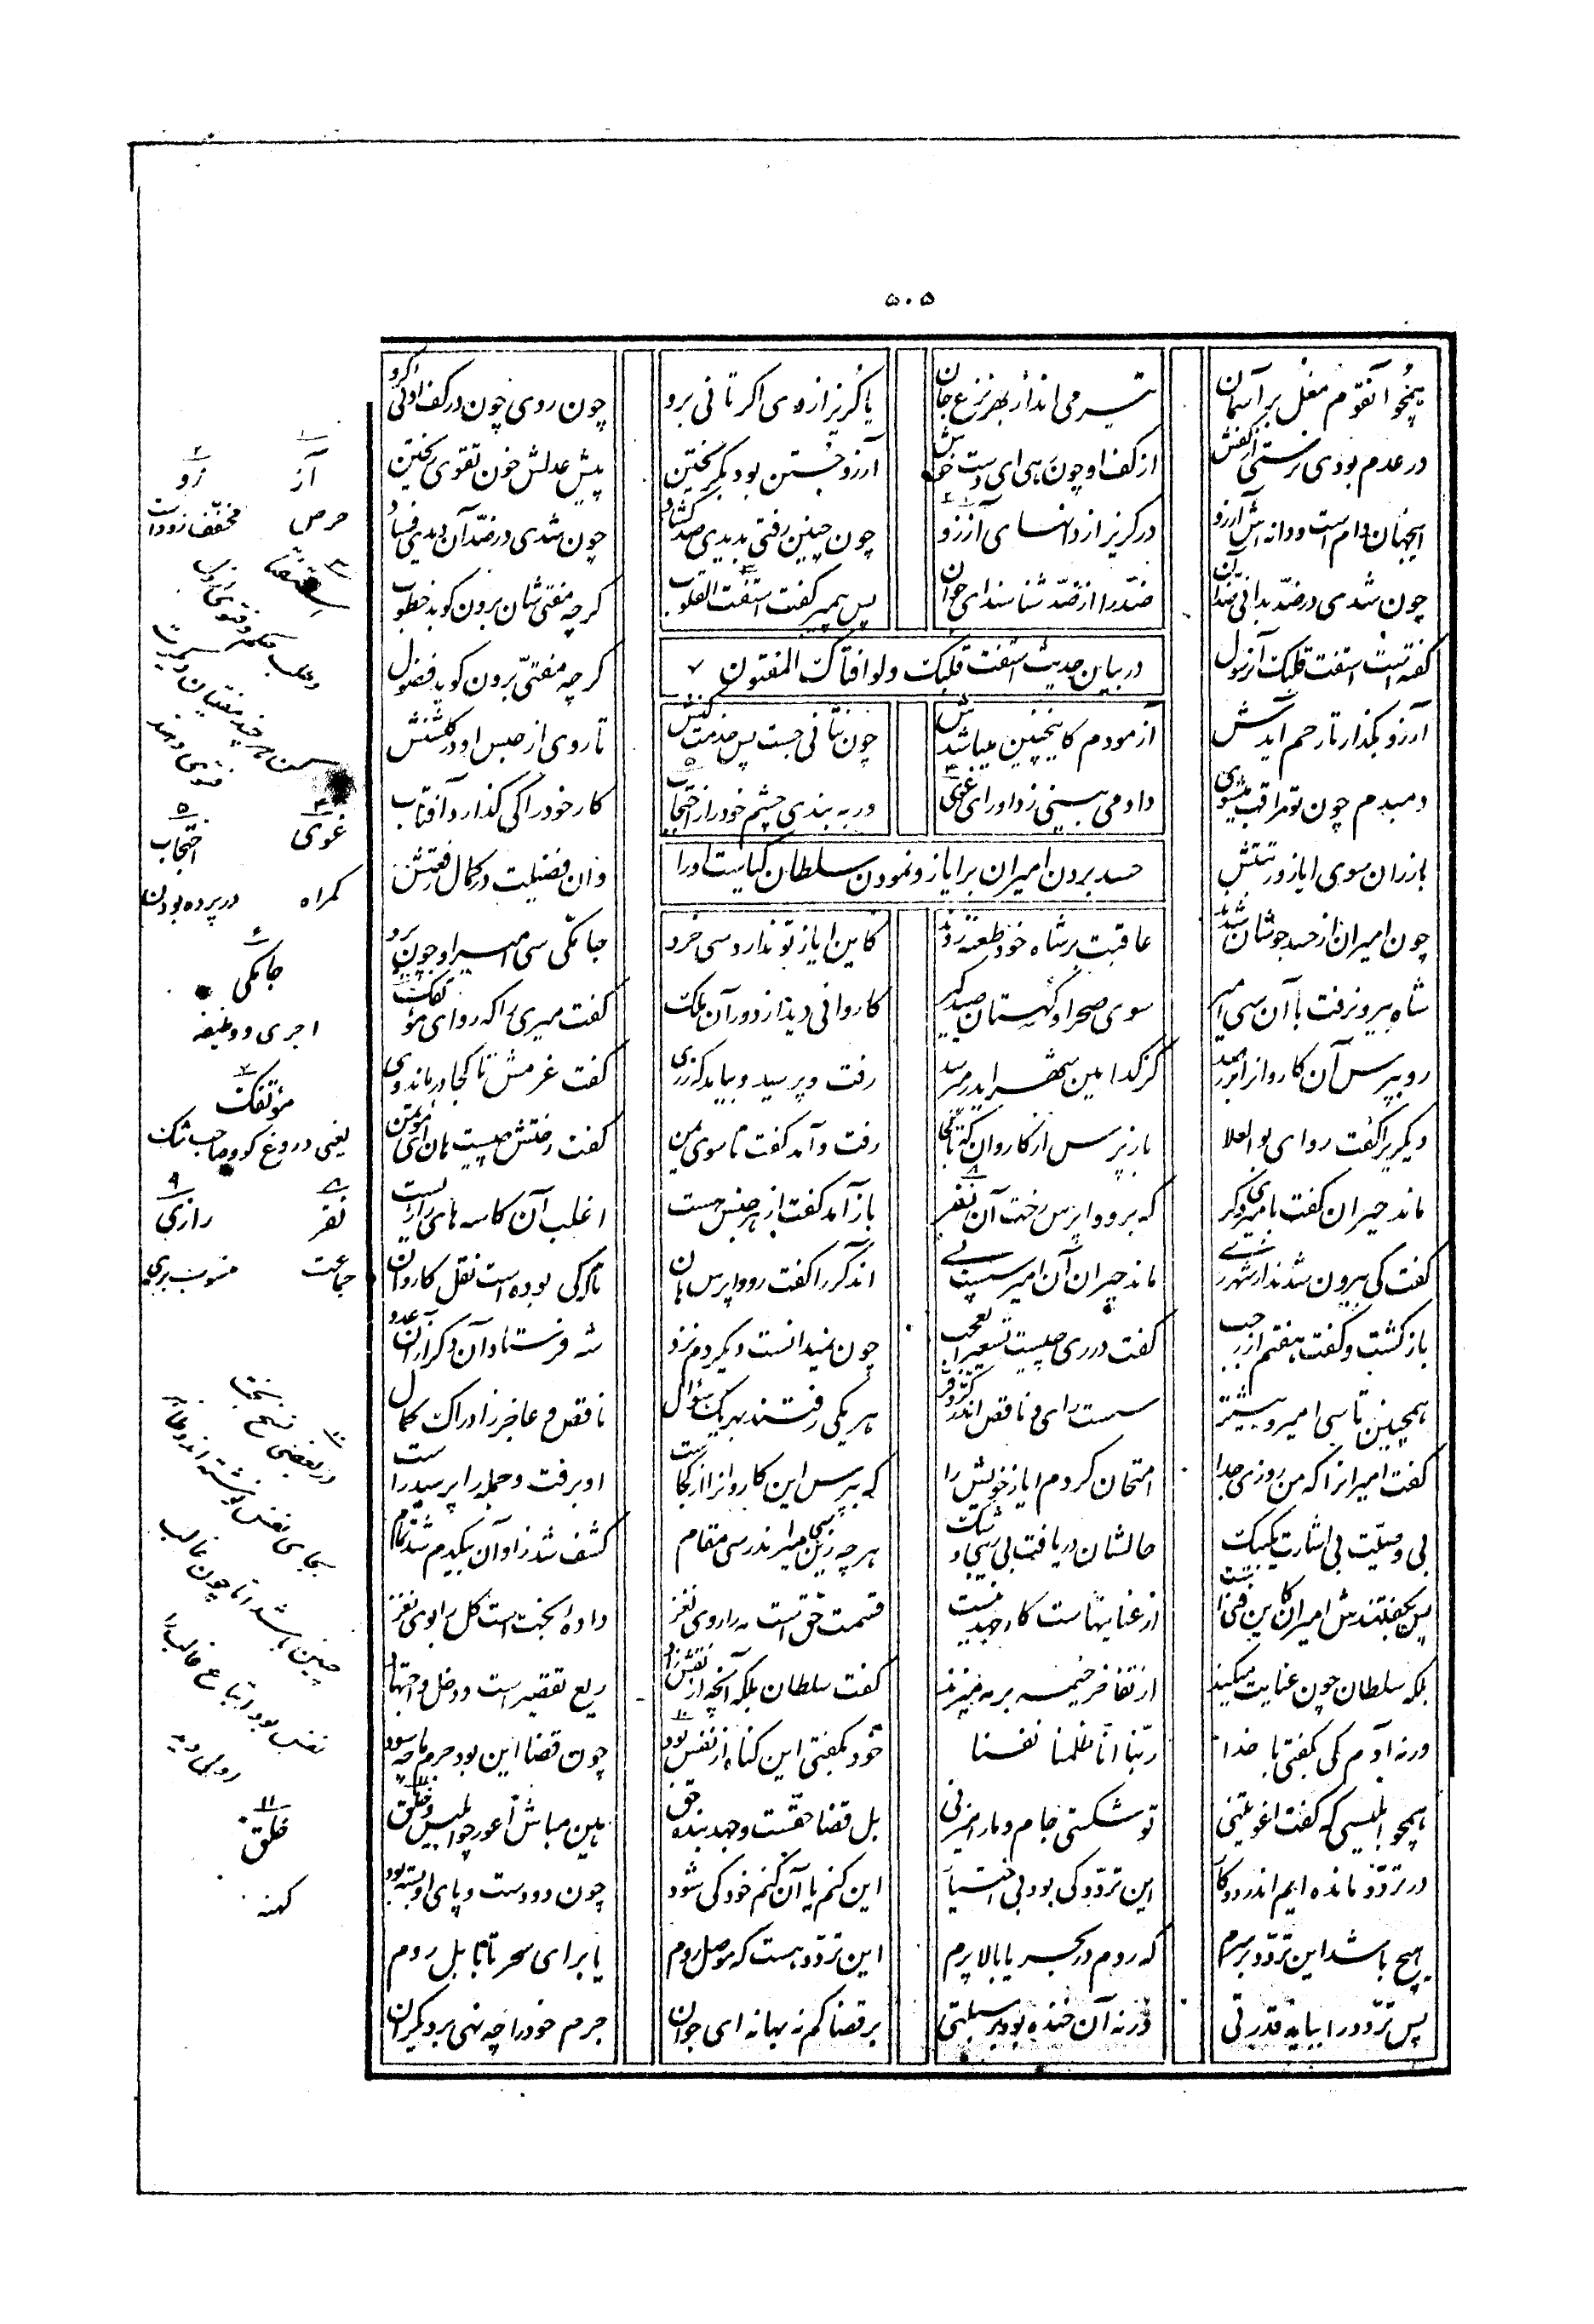 ۵۰۵
همچو آنقوم مغل بر آسمان تیر می انداز بهر نزع جان یا گریز از وی اگر تانی برو چون روی چون در کف اوئی گرو
در عدم بودی نرستی از کفش از کف او چون رهی ای دست خوش آرزو جستن بود بگریختن پیش عدلش خون تقوی ریختن
اینجهان دام است و دانه اش آرزو در گریز از دانهای آز زو چون چنین رفتی بدیدی صد گشاد چون شدی در ضدّ آن دیدی فساد
چون شدی در ضدّ بدانی ضدّ آن ضدّ را از ضدّ شناسند ای جوان پس پیمبر گفت استفت القلوب گر چه مفتی شان برون گوید خطوب
گفته است استفت قلبک آن رسول گر چه مفتیّ برون گوید فضول
در بیان حدیث استفت قلبک ولو افتاک المفتون
آرزو بگذار تا رحم آیدش آزمودم کاینچنین میبایدش چون نتانی جست پس خدمت کنش تا روی از حبس او در گلشنش
دمبدم چون تو مراقب میشوی داد می بینی ز داور ای غوی ور به بندی چشم خود را ز احتجاب کار خود را کی گذارد آفتاب
باز ران سوی ایاز و رتبتش وان فضیلت در کمال رفعتش
حسد بردن امیران بر ایاز و نمودن سلطان کیاست او را
چون امیران از حسد جوشان شدند عاقبت بر شاه خود طعنه زدند کاین ایاز تو ندارد سی خرد جامگی سی امیر او چون برد
شاه بیرون رفت با آن سی امیر سوی صحرا و کهستان صیدگیر کاروانی دید از دور آن ملک گفت میری را که رو ای مؤتفک
رو بپرس آن کاروانرا بر رصد کز کدامین شهر اندر میرسد رفت و پرسید و بیامد که ز ری گفت عزمش تا کجا درماند وی
دیگریرا گفت رو ای بوالعلا باز پرس از کاروان که تا کجا رفت و آمد گفت تا سوی یمن گفت رختش چیست هان ای مؤتمن
ماند حیران گفت با میری دگر که برو واپرس رخت آن نفر باز آمد گفت از هر جنس هست اغلب آن کاسه های رازیست
گفت کی بیرون شدند از شهر ری ماند حیران آن امیر سست پی آندگر را گفت رو واپرس هان تا که کی بوده است نقل کاروان
باز گشت و گفت هفتم از رجب گفت در ری چیست تسعیر ای عجب چون نمیدانست دیگر دم نزد شه فرستاد آن دگر را زان عدد
همچنین تا سی امیر و بیشتر سست رای و ناقص اندر کرّ و فرّ هر یکی رفتند بهر یک سؤال ناقص و عاجز ز ادراک کمال
گفت امیرانرا که من روزی جدا امتحان کردم ایاز خویش را که بپرس این کاروانرا از کجاست او برفت و جمله را پرسید راست
بی وصیّت بی اشارت یک بیک حالشان دریافت بی ریبی و شک هر چه زین سی میر اندر سی مقام کشف شد زاو آن بیکدم شد تمام
پس بگفتندش امیران کاین فنی است از عنایتهاست کار جهد نیست قسمت حق است مه را روی نغز داده بخت است گل را بوی نغز
بلکه سلطان چون عنایت میکند از تفاخر خیمه بر مه میزند گفت سلطان بلکه آنچه از نفس زاد ریع تقصیر است و دخل اجتهاد
ورنه آدم کی بگفتی با خدا ربّنا انّا ظلمنا نفسنا خود بگفتی این گناه از نفس بود چون قضا این بود حزم ما چه سود
همچو ابلیسی که گفت اغویتنی تو شکستی جام و ما را میزنی بل قضا حقّست و جهد بنده حق هین مباش اعور چو ابلیس خلق
در تردّد مانده ایم اندر دو کار این تردّد کی بود بی اختیار این کنم یا آن کنم خود کی شود چون دو دست و پای او بسته بود
هیچ باشد این تردّد بر سرم که روم در بحر یا بالا پرم این تردّد هست که موصل روم یا برای سحر تا بابل روم
پس تردّد را بباید قدرتی ورنه آن خنده بود بر سبلتی بر قضا کم نه بهانه ای جوان جرم خود را چه نهی بر دیگران
۱ آز حرص
۲ زو مخفّف زود است
۳
۴ غوی گمراه
۵ احتجاب در پرده بودن
۶ جامکی اجری و وظیفه
۷ مؤتفک یعنی دروغ گو و صاحب شک
۸ نفر جماعت
۹ رازی منسوب بری
۱۰ در بعضی نسخ
۱۱ خلق کهنه